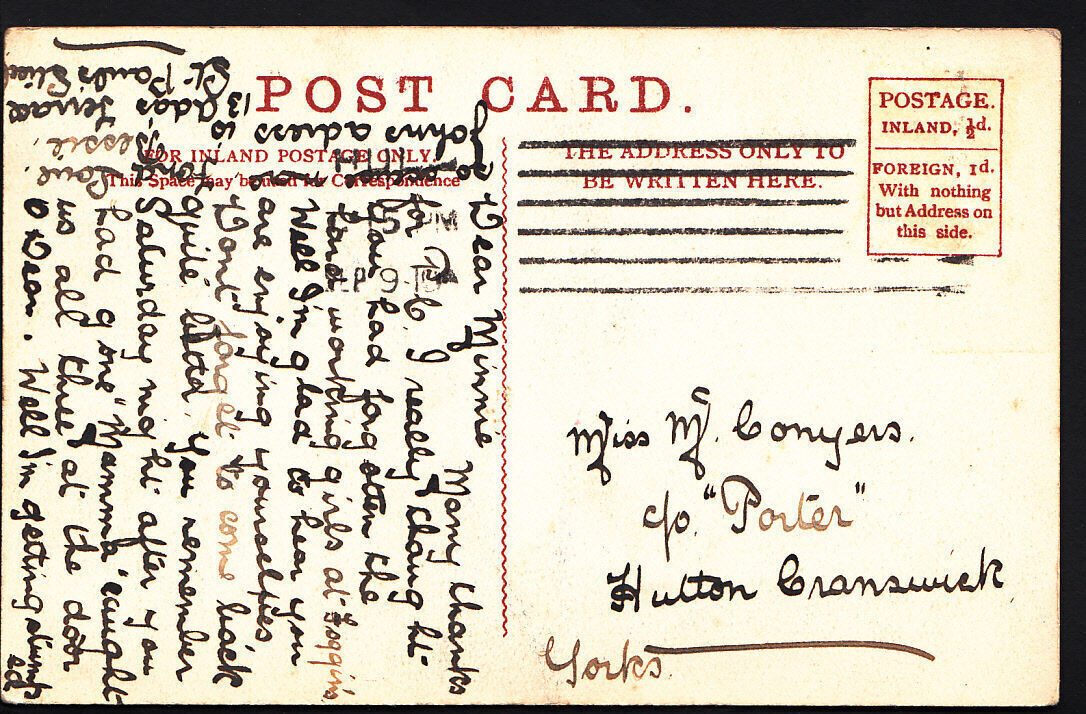 POST CARD.
FOR INLAND POSTAGE ONLY.
This Space may be used for Correspondence
THE ADDRESS ONLY TO
BE WRITTEN HERE.
POSTAGE.
INLAND, ½d.
FOREIGN, 1d.
With nothing
but Address on
this side.
Dear Minnie
Many thanks
for P.C. I really thaught
you had forgotten the
hard working girls at Loggins
Well I'm glad to hear you
are enjoying yourselves
Don't forget to come back
quite bad. you remember
Saturday night after you
had gone "Mamma" caught
us all three at the door
O Dear. Well I'm getting stumped
so
Fond
Love.
Bessie.
Johns adress
is
13 Adas Terrace
St Pauls
Miss M. Conyers.
c/o. "Porter"
Hutton Cranswick
Yorks.